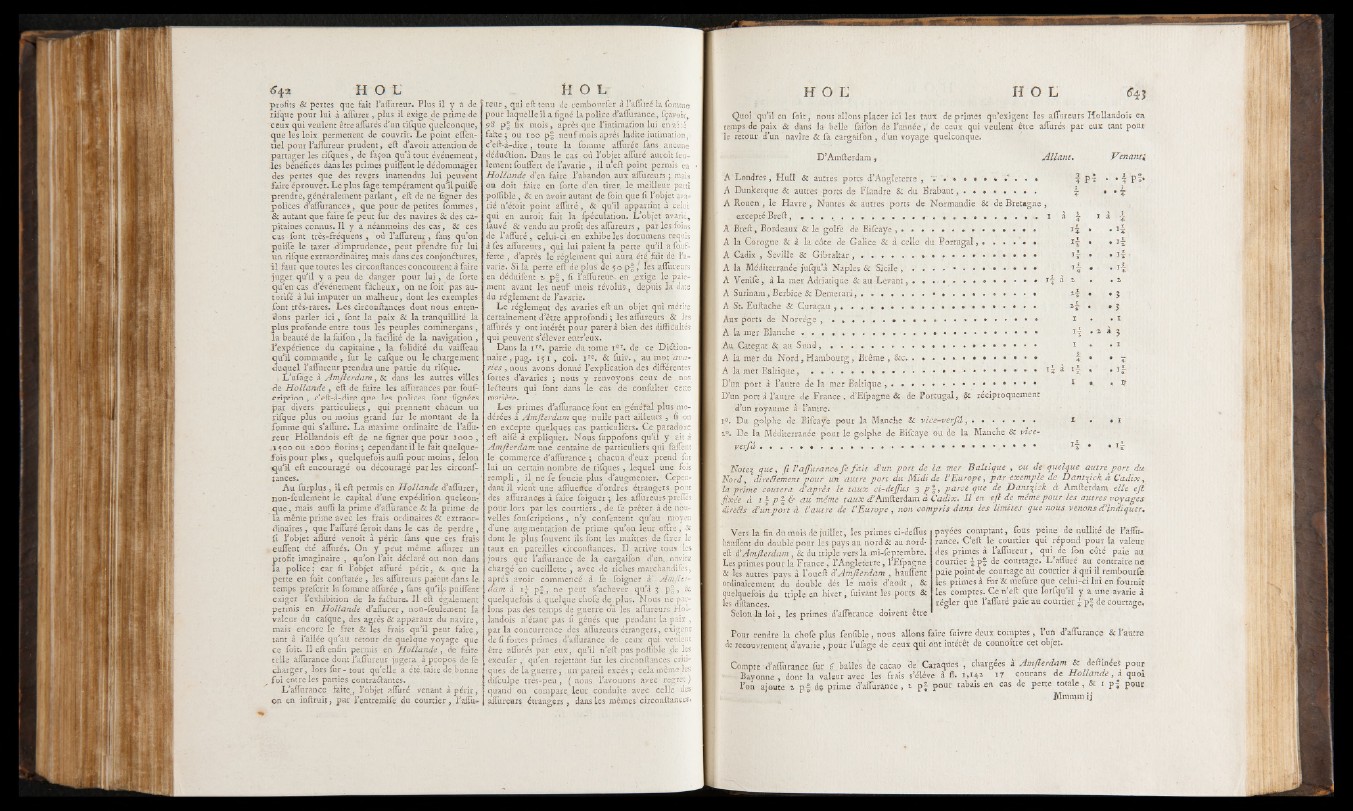 642 H O L H O L
profits & pertes que fait l'assureur. Plus il y a de
risque pour lui à assurer, plus il exige de prime de
ceux qui veulent être assurés d'un risque quelconque,
que les loix permettent de couvrir. Le point essen-
tiel pour l'assureur prudent, est d'avoir attention de
partager les risques, de façon qu'à tout événement,
les bénéfices dans les primes puissent le dédommager
des pertes que des revers inattendus lui peuvent
faire éprouver. Le plus sage tempérament qu'il puisse
prendre, généralement parlant, est de ne signer des
polices d'assurances, que pour de petites sommes,
& autant que faire se peut sur des navires & des ca-
pitaines connus. Il y a néanmoins des cas, & ces
cas sont très-fréquens, où l'assureur, sans qu'on
puisse le taxer d'imprudence, peut prendre sur lui
un risque extraordinaire; mais dans ces conjonctures,
il faut que toutes les circonstances concourent à faire
juger qu'il y a peu de danger pour lui, de sorte
qu'en cas d'événement fâcheux, on ne soit pas au-
torisé à lui imputer un malheur, dont les exemples
sont très-rares. Les circonstances dont nous enten-
dons parler ici, sont la paix & la tranquillité la
plus profonde entre tous les peuples commerçans,
la beauté de la saison, la facilité de la navigation,
l'expérience du capitaine, la solidité du vaisseau
qu'il commande, sur le casque ou le chargement
duquel l'assureur prendra une partie du risque.
L'usage à Amsterdam, & dans les autres villes
de Hollande, est de faire les assurances par sous-
cription, c'est-à-dire que les polices sont signées
par divers particuliers, qui prennent chacun un
risque plus ou moins grand sur le montant de la
somme qui s'assure. La maxime ordinaire de l'assu-
reur Hollandois est de ne signer que pour 1000,
1500 ou 2000 florins; cependant il le fait quelque-
fois pour plus, quelquefois aussi pour moins, selon
qu'il est encouragé ou découragé par les circons-
tances.
Au surplus, il est permis en Hollande d'assurer,
non-seulement le capital d'une expédition quelcon-
que, mais aussi la prime d'assurance & la prime de
la même prime avec les frais ordinaires & extraor-
dinaires, que l'assuré seroit dans le cas de perdre,
si l'objet assuré venoit à périr sans que ces frais
eussent été assurés. On y peut même assurer un
profit imaginaire, qu'on l'ait déclaré ou non dans
la police: car si l'objet assuré périt, & que la
perte en soit constatée, les assureurs paient dans le
temps prescrit la somme assurée, sans qu'ils puissent
exiger l'exhibition de la facture. Il est également
permis en Hollande d'assurer, non-seulement la
valeur du casque, des agrès & apparaux du navire,
mais encore le fret & les frais qu'il peut faire,
tant à l'allée qu'au retour de quelque voyage que
ce soit. Il est enfin permis en Hollande, de faire
telle assurance dont l'assureur jugera à propos de se
charger, lors sur-tout qu'elle a été faite de bonne
foi entre les parties contractantes.
L'assurance faite, l'objet assuré venant à périr,
on en instruit, par l'entremise du courtier, l'assu-
reur, qui est tenu de rembourser à l'assuré la somme
pour laquelle il a signé la police d'assurance, sçavoir,
98 p% six mois, après que l'intimation lui en a été
faite; ou 100 p% neuf mois après ladite intimation,
c'est-à-dire, toute la somme assurée sans aucune
déduction. Dans le cas où l'objet assuré auroit seu-
lement souffert de l'avarie, il n'est point permis en
Hollande d'en faire l'abandon aux assureurs; mais
on doit faire en sorte d'en tirer le meilleur parti
possible, & en avoir autant de soin que si l'objet ava-
rié n'étoit point assuré, & qu'il appartint à celui
qui en auroit fait la spéculation. L'objet avarié,
sauvé & vendu au profit des assureurs, par les soins
de l'assuré, celui-ci en exhibe les documens requis
à ses assureurs, qui lui paient la perte qu'il a souf-
ferte, d'après le réglement qui aura été fait de l'a-
varie. Si la perte est de plus de 50 p%, les assureurs
en déduisent 2 p%, si l'assureur en exige le paie-
ment avant les neuf mois révolus, depuis la date
du réglement de l'avarie.
Le réglement des avaries est un objet qui mérite
certainement d'être approfondi; les assureurs & les
assurés y ont intérêt pour parer à bien des difficultés
qui peuvent s'élever entr'eux.
Dans la 1re. partie du tome 1er. de ce Diction-
naire, pag. 151, col. 1re. & suiv., au mot ava-
ries, nous avons donné l'explication des différentes
sortes d'avaries; nous y renvoyons ceux de nos
lecteurs qui sont dans le cas de consulter cette
matière.
Les primes d'assurance sont en général plus mo-
dérées à Amsterdam que nulle part ailleurs, si on
en excepte quelques cas particuliers. Ce paradoxe
est aisé à expliquer. Nous supposons qu'il y ait à
Amsterdam une centaine de particuliers qui fassent
le commerce d'assurance; chacun d'eux prend sur
lui un certain nombre de risques, lequel une fois
rempli, il ne se soucie plus d'augmenter. Cepen-
dant il vient une affluence d'ordres étrangers pour
des assurances à faire soigner; les assureurs pressés
pour lors par les courtiers, de se prêter à de nou-
velles souscriptions, n'y consentent qu'au moyen
d'une augmentation de prime qu'on leur offre, &
dont le plus souvent ils sont les maîtres de fixer le
taux en pareilles circonstances. Il arrive tous les
jours que l'assurance de la cargaison d'un navire
chargé en cueillette, avec de riches marchandises,
après avoir commencé à se soigner à Amster-
dam à 1½ p%, ne peut s'achever qu'à 3 p%, &
quelquefois à quelque chose de plus. Nous ne par-
lons pas des temps de guerre où les assureurs Hol-
landois n'étant pas si gênés que pendant la paix,
par la concurrence des assureurs étrangers, exigent
de si fortes primes d'assurance de ceux qui veulent
être assurés par eux, qu'il n'est pas possible de les
excuser, qu'en rejettant sur les circonstances criti-
ques de la guerre, un pareil excès; cela même les
disculpe très-peu, (nous l'avouons avec regret)
quand on compare leur conduite avec celle des
assureurs étrangers, dans les mêmes circonstances.
H O L H O L 643
Quoi qu'il en soit, nous allons placer ici les taux de primes qu'exigent les assureurs Hollandois en
temps de paix & dans la belle saison de l'année, de ceux qui veulent être assurés par eux tant pour
le retour d'un navire & sa cargaison, d'un voyage quelconque.
D'Amsterdam, Allant. Venant.
A Londres, Hull & autres ports d'Angleterre, . . . . ¾ p% . . ¾ p%.
A Dunkerque & autres ports de Flandre & du Brabant, . . . .
A Rouen, le Havre, Nantes & autres ports de Normandie & de Bretagne,
excepté Brest, . . . . 1 à 1 à
A Brest, Bordeaux & le golfe de Biscaye, . . . .
A la Corogne & à la côte de Galice & à celle du Portugal, . . . .
A Cadix, Seville & Gibraltar, . . . .
A la Méditerranée jusqu'à Naples & Sicile, . . . .
A Venise, à la mer Adriatique & au Levant, . . . . à 2 . 2
A Surinam, Berbice & Demerari, . . . . 2½ . 3
A St. Eustache & Curaçau, . . . . 2½ . 3
Aux ports de Norvège, . . . . 1 . 1
A la mer Blanche . . . . 1½ . 2 à 3
Au Categat & au Sund, . . . . 1 . 1
A la mer du Nord, Hambourg, Brême, &c. . . . .
A la mer Baltique, . . . .
D'un port à l'autre de la mer Baltique, . . . . 1 . 1
D'un port à l'autre de France, d'Espagne & de Portugal, & réciproquement
d'un royaume à l'autre.
1°. Du golphe de Biscaye pour la Manche & vice-versâ, . . . . 1 . 1
2°. De la Méditerranée pour le golphe de Biscaye ou de la Manche & vice-
versâ . . . . 1½ . 1½
Notez que, si l'assurance se fait d'un port de la mer Baltique, ou de quelque autre port du
Nord, directement pour un autre port du Midi de l'Europe, par exemple de Dantzick à Cadix,
la prime coutera d'après le taux ci-dessus 3 p%, parce que de Dantzick à Amsterdam elle est
fixée à 1½ p% & au même taux d'Amsterdam à Cadix. Il en est de même pour les autres voyages
directs d'un port à l'autre de l'Europe, non compris dans les limites que nous venons d'indiquer.
Vers la fin du mois de juillet, les primes ci-dessus
haussent du double pour les pays au nord & au nord-
est d'Amsterdam, & du triple vers la mi-septembre.
Les primes pour la France, l'Angleterre, l'Espagne
& les autres pays à l'ouest d'Amsterdam, haussent
ordinairement du double dès le mois d'août, &
quelquefois du triple en hiver, suivant les ports &
les distances.
Selon la loi, les primes d'assurance doivent être
payées comptant, sous peine de nullité de l'assu-
rance. C'est le courtier qui répond pour la valeur
des primes à l'assureur, qui de son côté paie au
courtier ¼ p% de courtage. L'assuré au contraire ne
paie point de courtage au courtier à qui il rembourse
les primes à fur & mesure que celui-ci lui en fournit
les comptes. Ce n'est que lorsqu'il y a une avarie à
régler que l'assuré paie au courtier ½ p% de courtage.
Pour rendre la chose plus sensible, nous allons faire suivre deux comptes, l'un d'assurance & l'autre
de recouvrement d'avarie, pour l'usage de ceux qui ont intérêt de connoître cet objet.
Compte d'assurance sur 6 balles de cacao de Caraques, chargées à Amsterdam & destinées pour
Bayonne, dont la valeur avec les frais s'élève à fl. 1,142 17 courans de Hollande, à quoi
l'on ajoute 2 p% de prime d'assurance, 2 p% pour rabais en cas de perte totale, & 1 p% pour
Mmmm ij